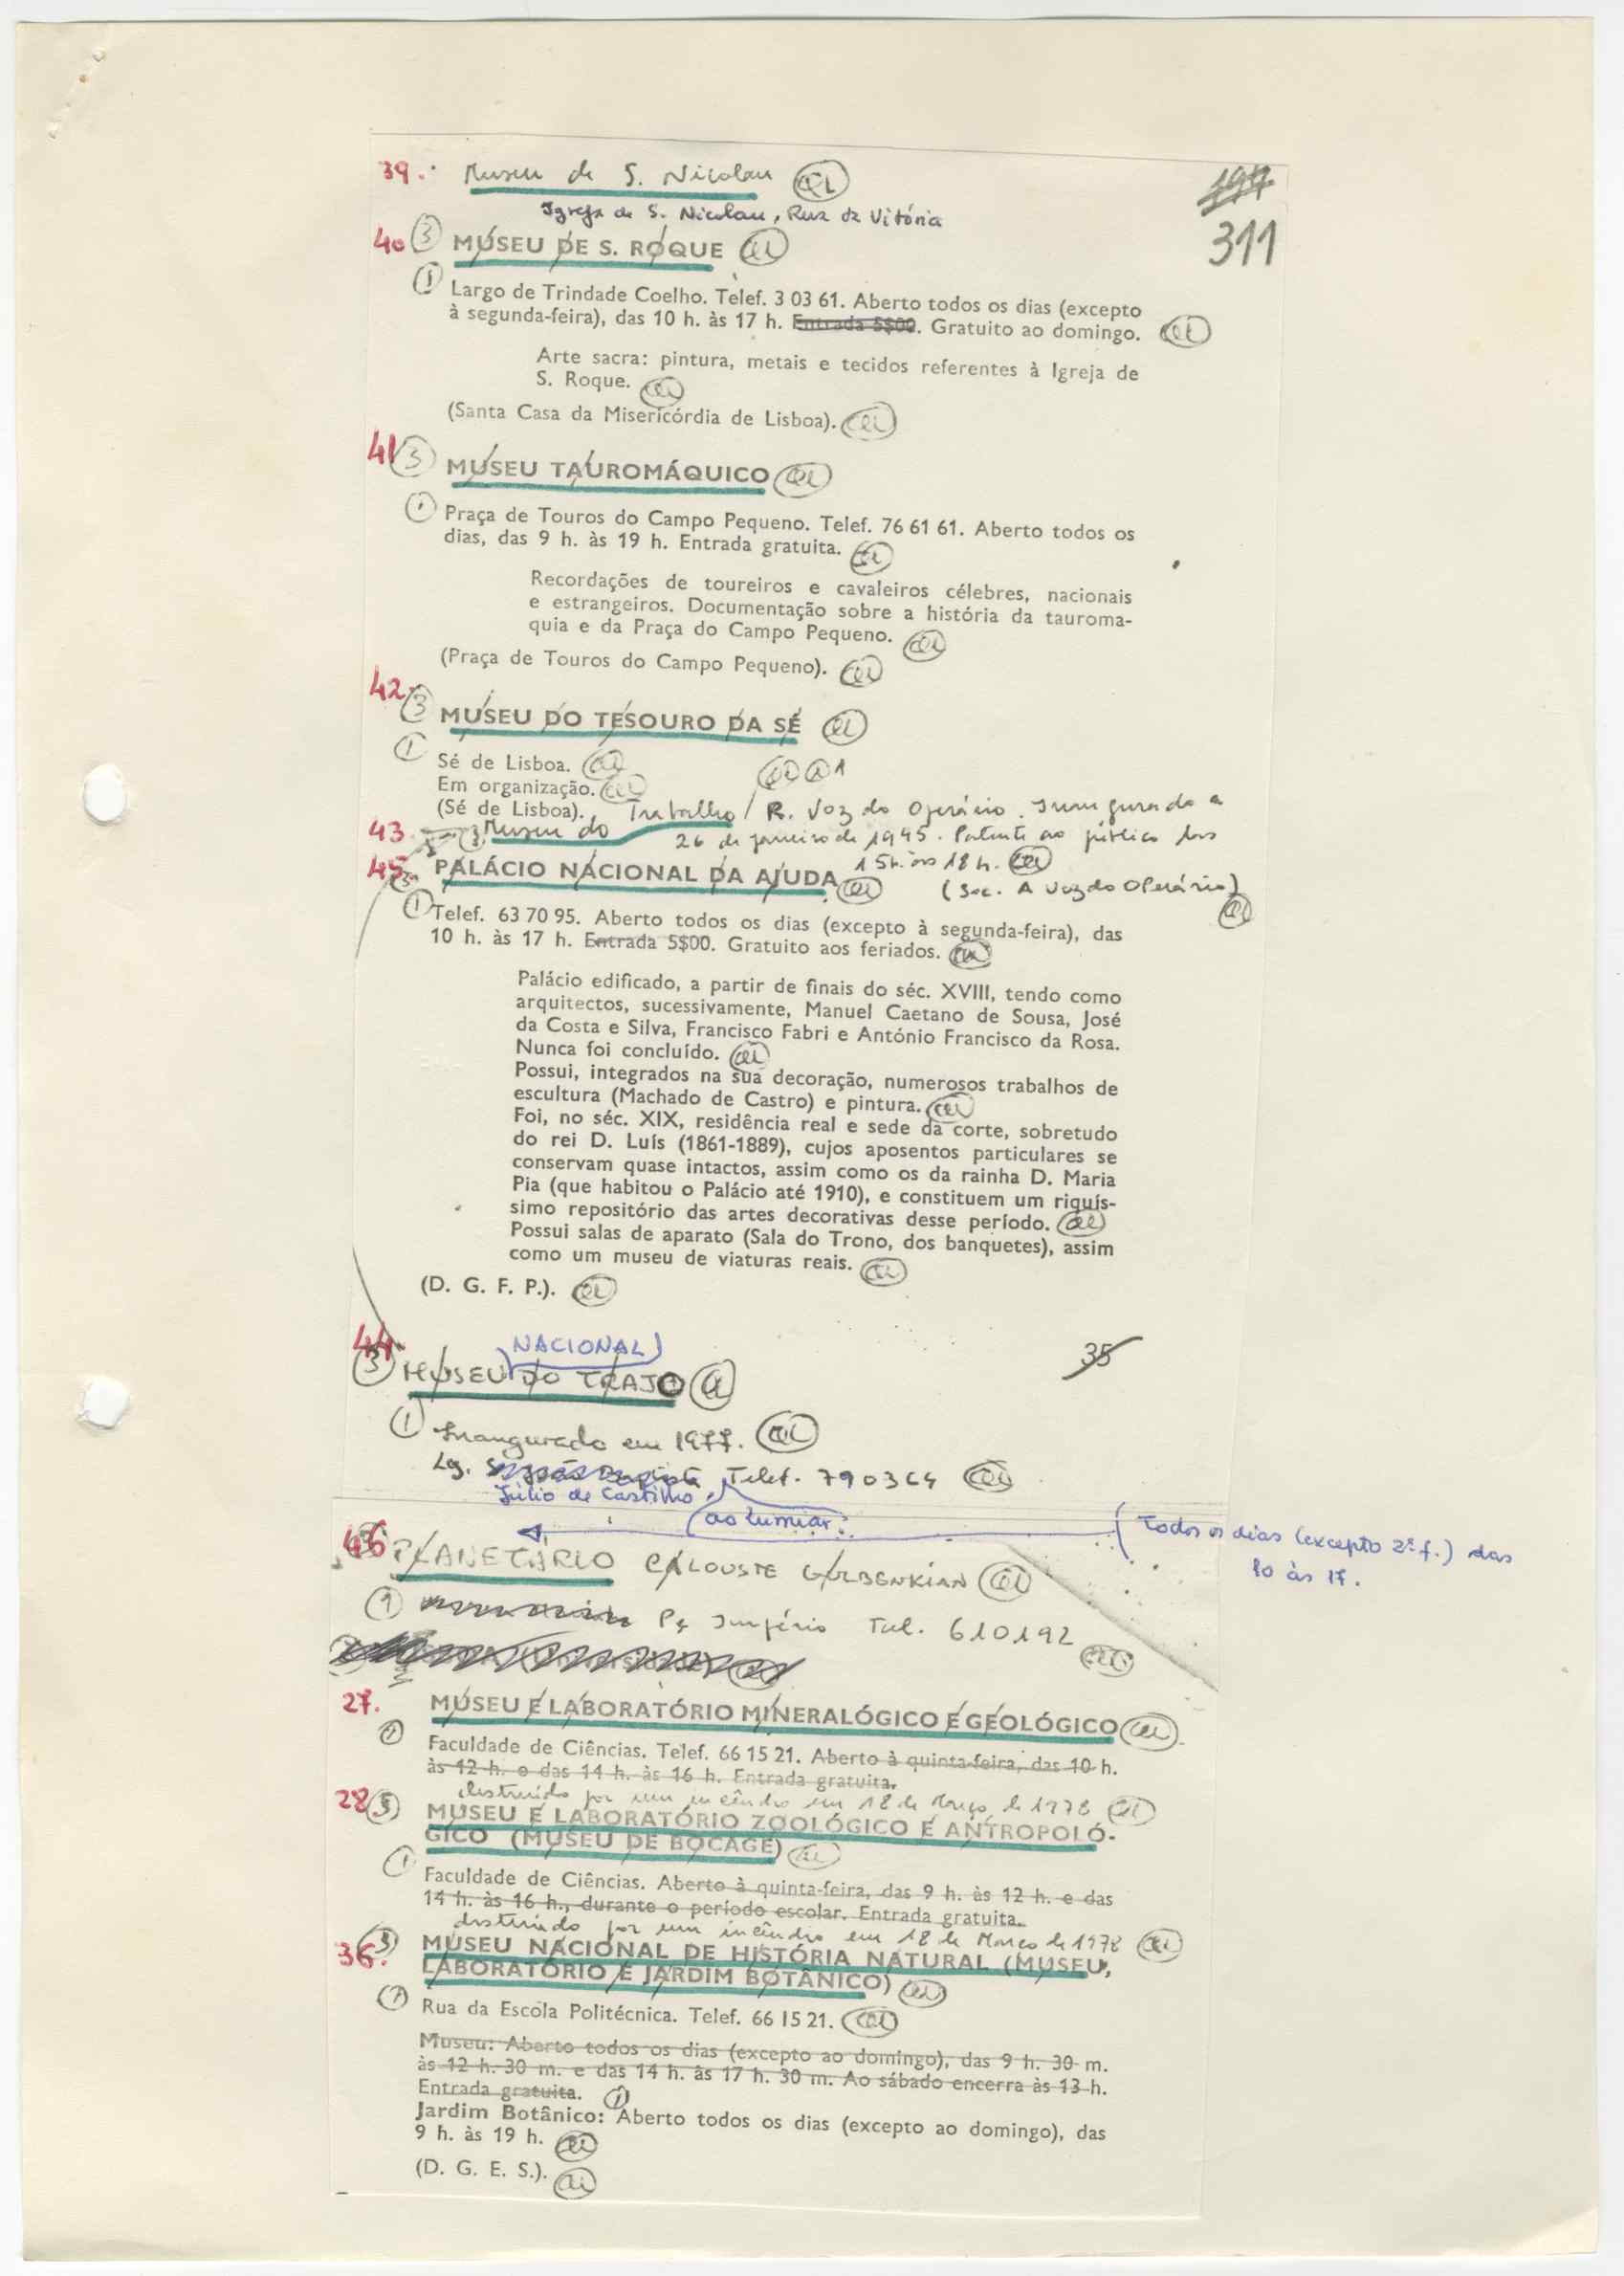 39. Museu de S. Nicolau
197
311
Igreja de S. Nicolau, Rua da Vitória
40 3 MUSEU DE S. ROQUE
1 Largo de Trindade Coelho. Telef. 3 03 61. Aberto todos os dias (excepto
à segunda-feira), das 10 h. às 17 h. Entrada 5$00. Gratuito ao domingo.
Arte sacra: pintura, metais e tecidos referentes à Igreja de
S. Roque.
(Santa Casa da Misericórdia de Lisboa).
41 3 MUSEU TAUROMÁQUICO
1 Praça de Touros do Campo Pequeno. Telef. 76 61 61. Aberto todos os
dias, das 9 h. às 19 h. Entrada gratuita.
Recordações de toureiros e cavaleiros célebres, nacionais
e estrangeiros. Documentação sobre a história da tauroma-
quia e da Praça do Campo Pequeno.
(Praça de Touros do Campo Pequeno).
42. 3 MUSEU DO TESOURO DA SÉ
1 Sé de Lisboa.
Em organização.
(Sé de Lisboa).
43 3 Museu do Trabalho / R. Voz do Operário. Inaugurado a
26 de janeiro de 1945. Patente ao público das
15h. às 18h.
(Soc. A Voz do Operário)
45. 3 PALÁCIO NACIONAL DA AJUDA
1 Telef. 63 70 95. Aberto todos os dias (excepto à segunda-feira), das
10 h. às 17 h. Entrada 5$00. Gratuito aos feriados.
Palácio edificado, a partir de finais do séc. XVIII, tendo como
arquitectos, sucessivamente, Manuel Caetano de Sousa, José
da Costa e Silva, Francisco Fabri e António Francisco da Rosa.
Nunca foi concluído.
Possui, integrados na sua decoração, numerosos trabalhos de
escultura (Machado de Castro) e pintura.
Foi, no séc. XIX, residência real e sede da corte, sobretudo
do rei D. Luís (1861-1889), cujos aposentos particulares se
conservam quase intactos, assim como os da rainha D. Maria
Pia (que habitou o Palácio até 1910), e constituem um riquís-
simo repositório das artes decorativas desse período.
Possui salas de aparato (Sala do Trono, dos banquetes), assim
como um museu de viaturas reais.
(D. G. F. P.).
35
44. NACIONAL
3 MUSEU DO TRAJO
1 Inaugurado em 1977.
Lg. S. João Baptista Telef. 790364
Júlio de Castilho,
ao Lumiar.
Todos os dias (excepto 2ª f.) das
10 às 17.
46 PLANETÁRIO CALOUSTE GULBENKIAN
1 Pç Império Tel. 610192
27. MUSEU E LABORATÓRIO MINERALÓGICO E GEOLÓGICO
1 Faculdade de Ciências. Telef. 66 15 21. Aberto à quinta-feira, das 10 h.
às 12 h. e das 14 h. às 16 h. Entrada gratuita.
destruído por um incêndio em 18 de Março de 1978
28 3 MUSEU E LABORATÓRIO ZOOLÓGICO E ANTROPOLÓ-
GICO (MUSEU DE BOCAGE)
1 Faculdade de Ciências. Aberto à quinta-feira, das 9 h. às 12 h. e das
14 h. às 16 h., durante o período escolar. Entrada gratuita.
destruído por um incêndio em 18 de Março de 1978
36. 3 MUSEU NACIONAL DE HISTÓRIA NATURAL (MUSEU,
LABORATÓRIO E JARDIM BOTÂNICO)
1 Rua da Escola Politécnica. Telef. 66 15 21.
Museu: Aberto todos os dias (excepto ao domingo), das 9 h. 30 m.
às 12 h. 30 m. e das 14 h. às 17 h. 30 m. Ao sábado encerra às 13 h.
Entrada gratuita.
1 Jardim Botânico: Aberto todos os dias (excepto ao domingo), das
9 h. às 19 h.
(D. G. E. S.).